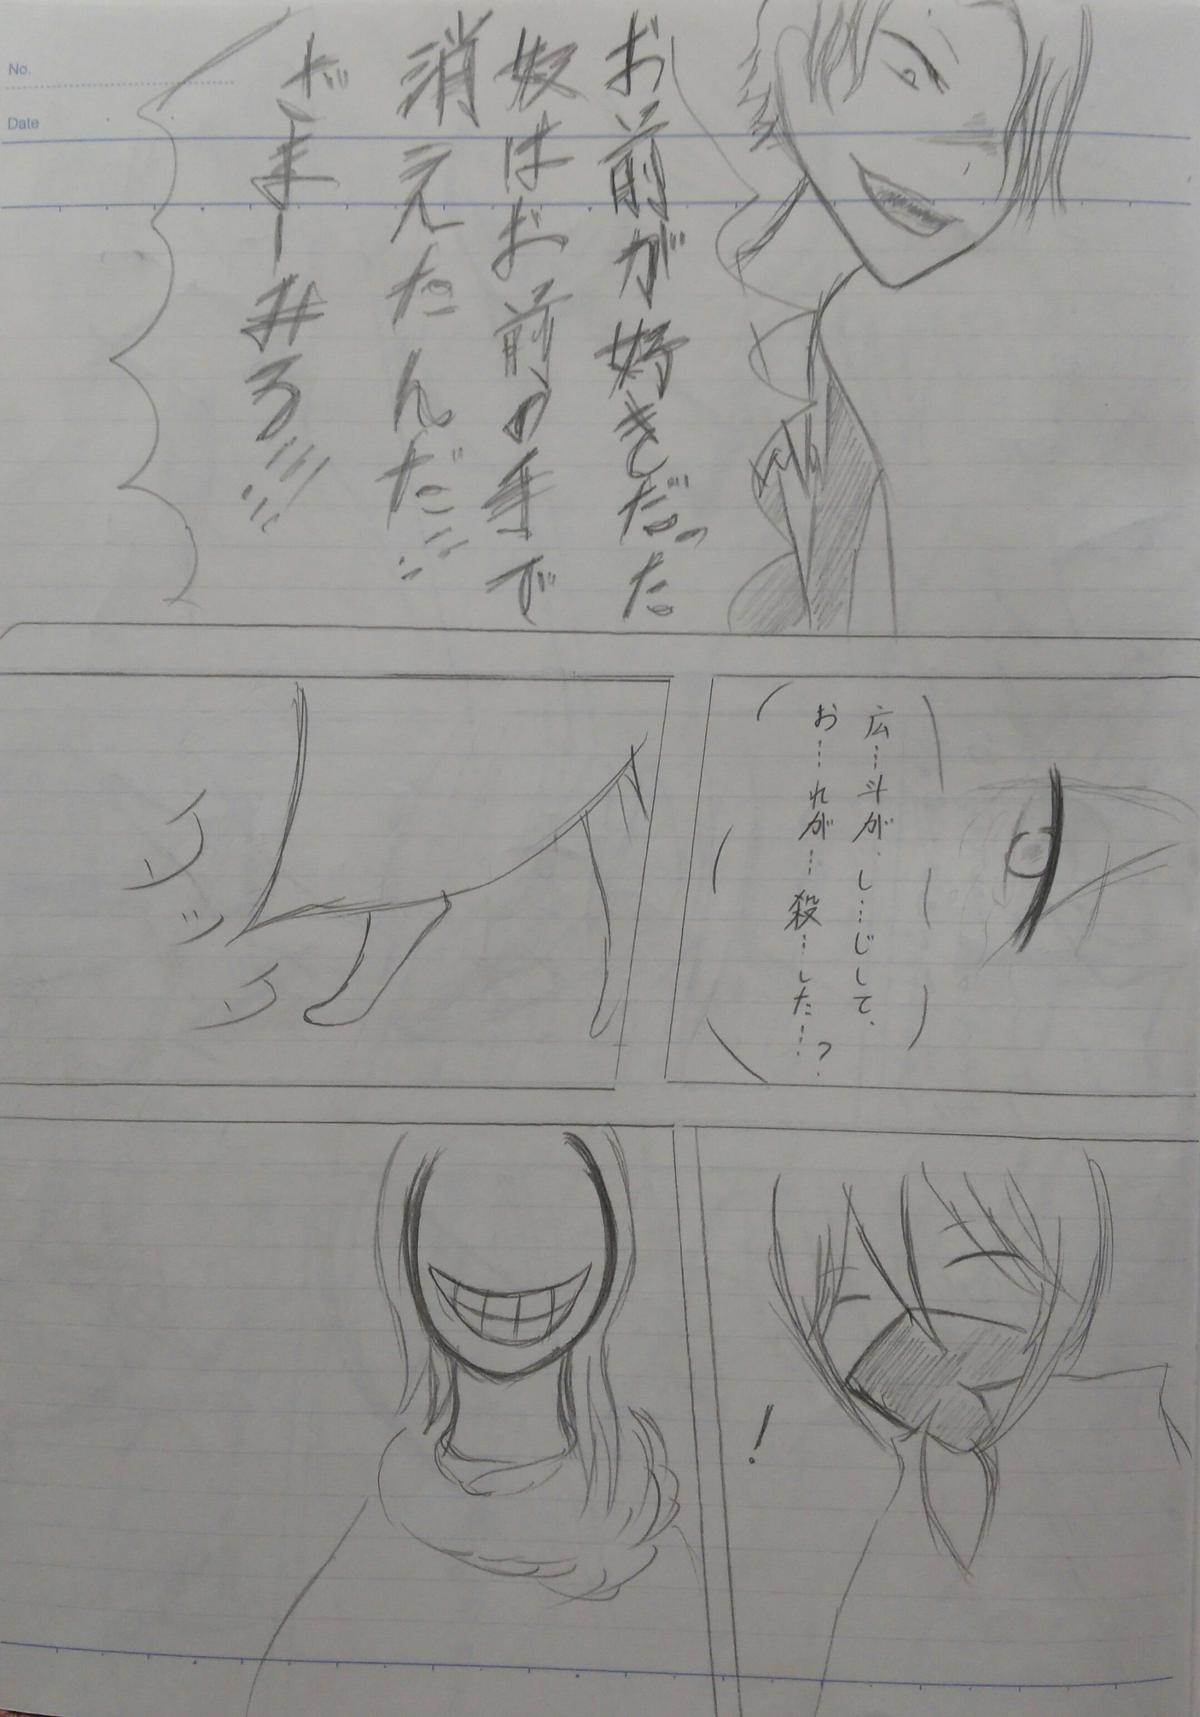 No.
Date
お前が好きだった
奴はお前の手で
消えたんだ!!!
ざまーみろ!!!
広…斗が、し…じして、
お…れが…殺…した…?
コツコツ
!